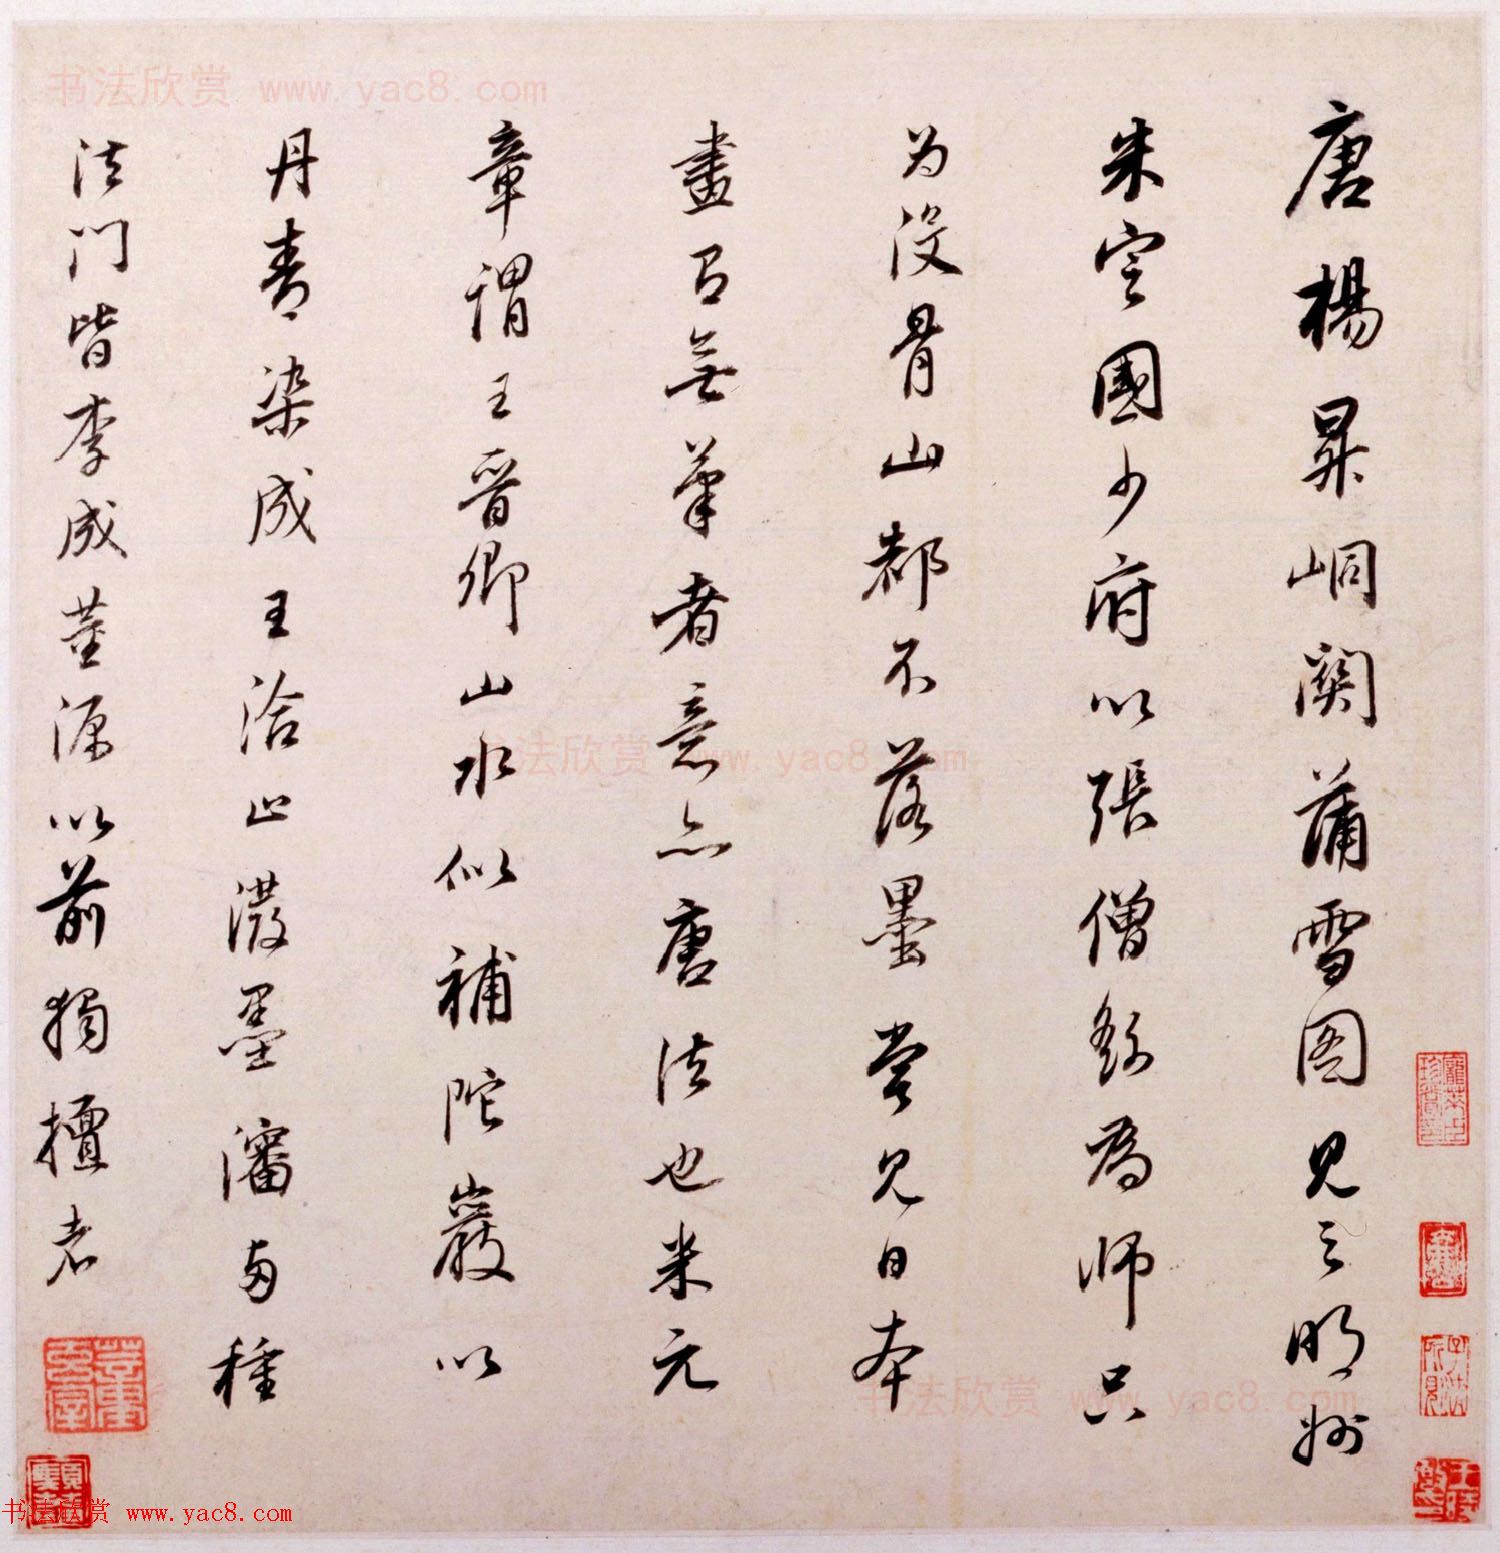 唐楊昇峒關蒲雪图見之明州
朱定國少府以張僧繇為师只
为没骨山都不落墨嘗見日本
畫有無筆者意亦唐法也米元
章謂王晉卿山水似補陀巖以
丹青染成王洽止潑墨瀋两種
法門皆李成董源以前獨擅者
书法欣赏 www.yac8.com
书法欣赏 www.yac8.com
书法欣赏 www.yac8.com
书法欣赏 www.yac8.com